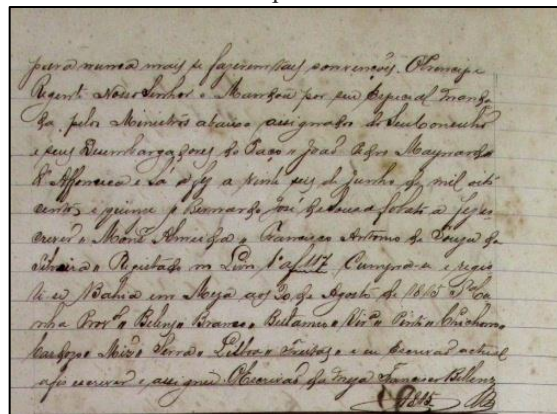 para nunca mais se fazerem tais convenções. O Principe
Regente Nosso Senhor o Mandou por seu Especial Manda
do, pelos Ministros abaixo assignados do Seu Conselho
e seus Desembargadores do Paço = João Pedro Maynard da
Affonseca e Sá a fez a vinte seis de Junho de mil oito
centos e quinze = Bernardo José de Souza Lobato a fez es
crever = Almeida = Francisco Antonio de Souza da
Silveira = Registado no Livro 1º af 117 Cumpra-se e regis
te-se Bahia em Meza aos 20 de Agosto de 1815 =
= Belens = Branco = = Pinto =
Cardozo = = Serra = Lisboa = Freitas = e eu Escrivão actual
a fis escrever e assignei O Escrivão da Meza Francisco
1815